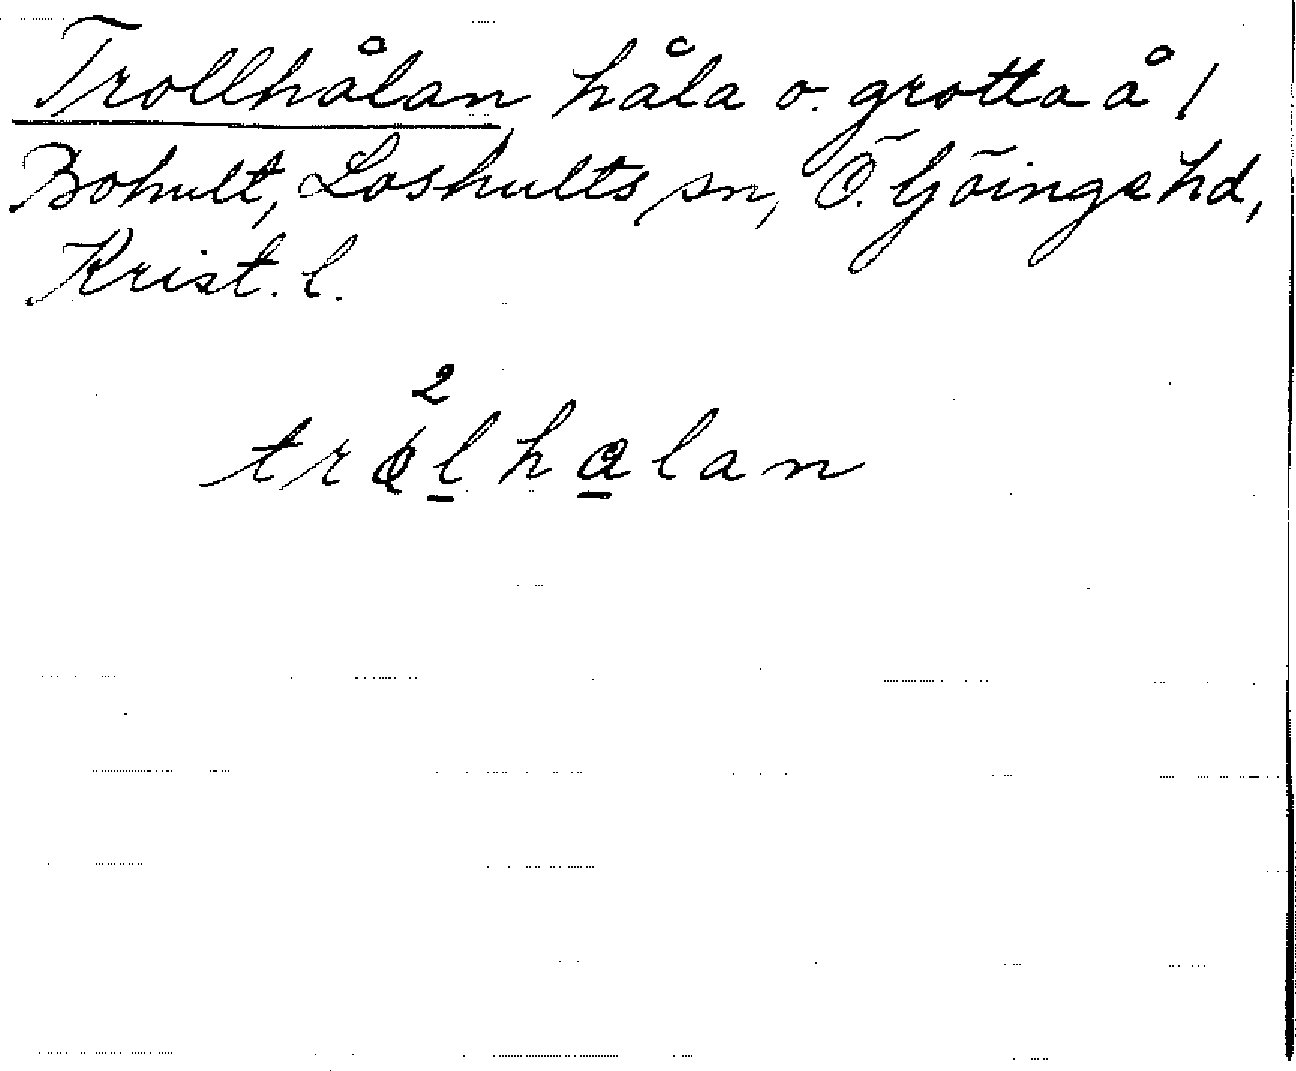 Trollhålan håla o. grotta å 1
Bohult, Loshults sn, Ö. Göinge hd,
Krist. l.
2
trålhalan